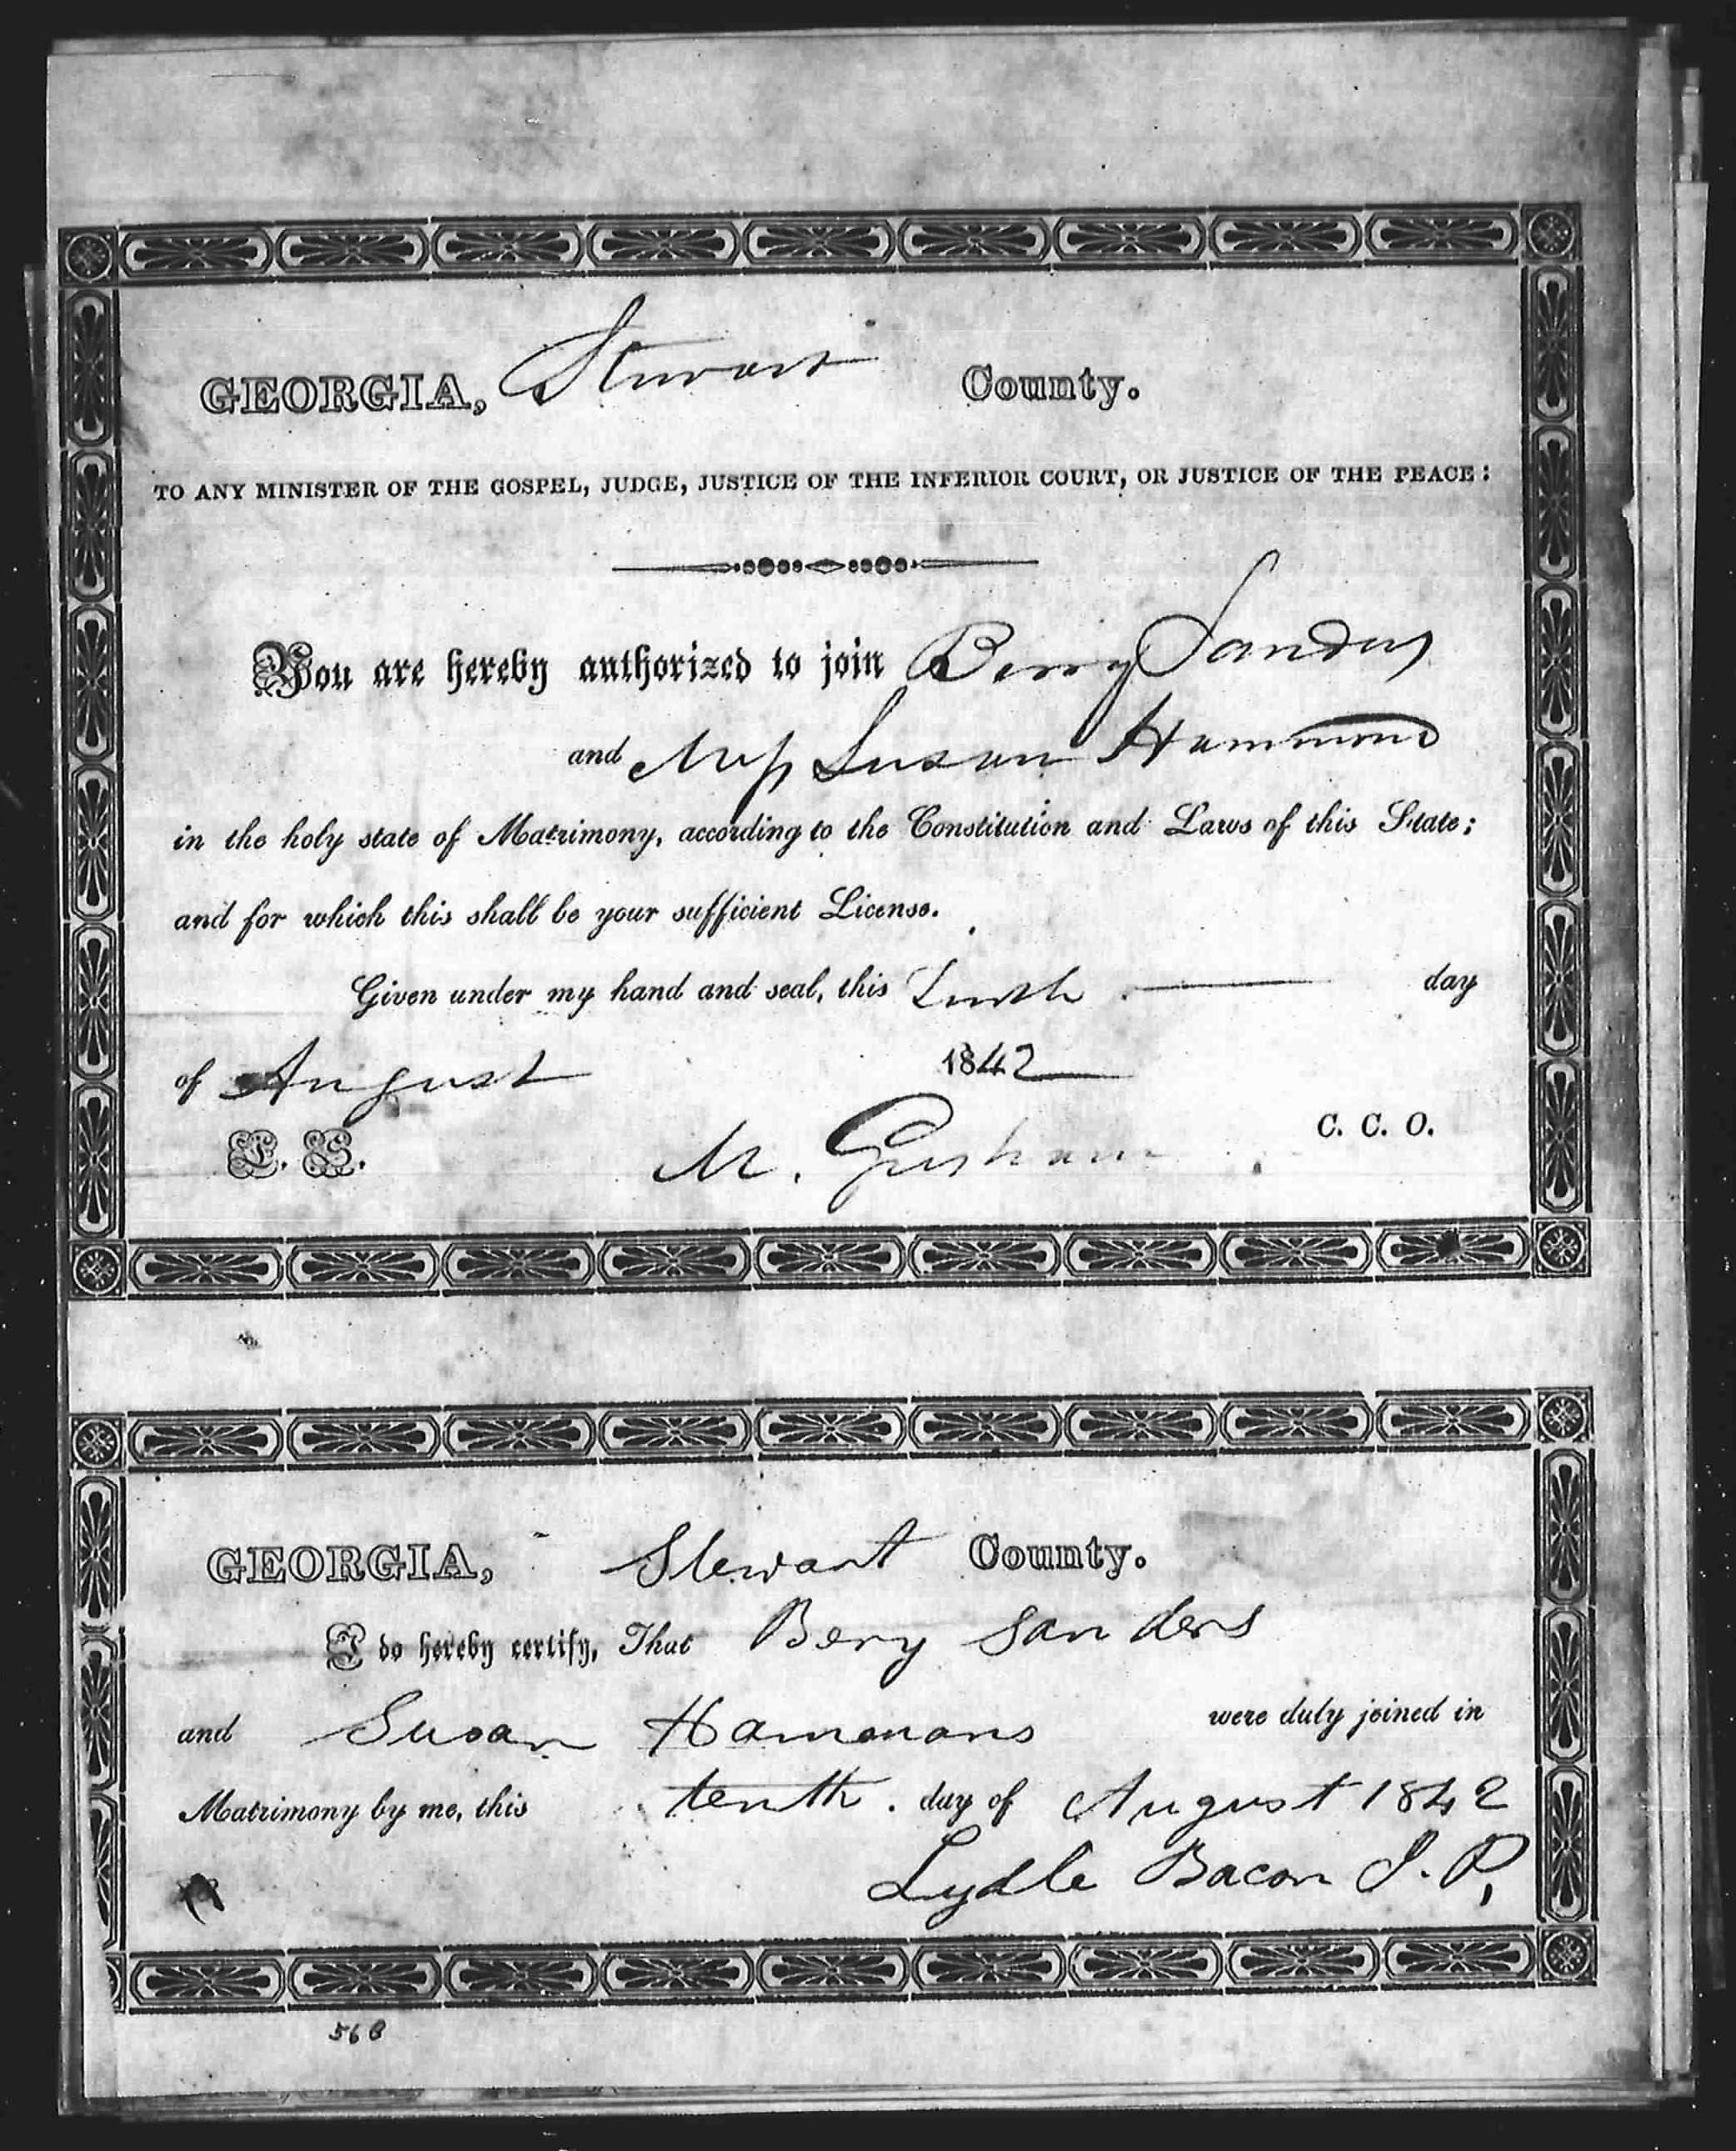 GEORGIA, Stewart County.
TO ANY MINISTER OF THE GOSPEL, JUDGE, JUSTICE OF THE INFERIOR COURT, OR JUSTICE OF THE PEACE:
You are hereby authorized to join Berry Sanders
and Miss Susan Hammond
in the holy state of Matrimony, according to the Constitution and Laws of this State;
and for which this shall be your sufficient License.
Given under my hand and seal, this day
of August 1842
L. S. M. Gresham C. C. O.
GEORGIA, Stewart County.
I do hereby certify, That Bery Sanders
and Susan Hammons were duly joined in
Matrimony by me, this tenth. day of August 1842
Lydle Bacon J. P.
568